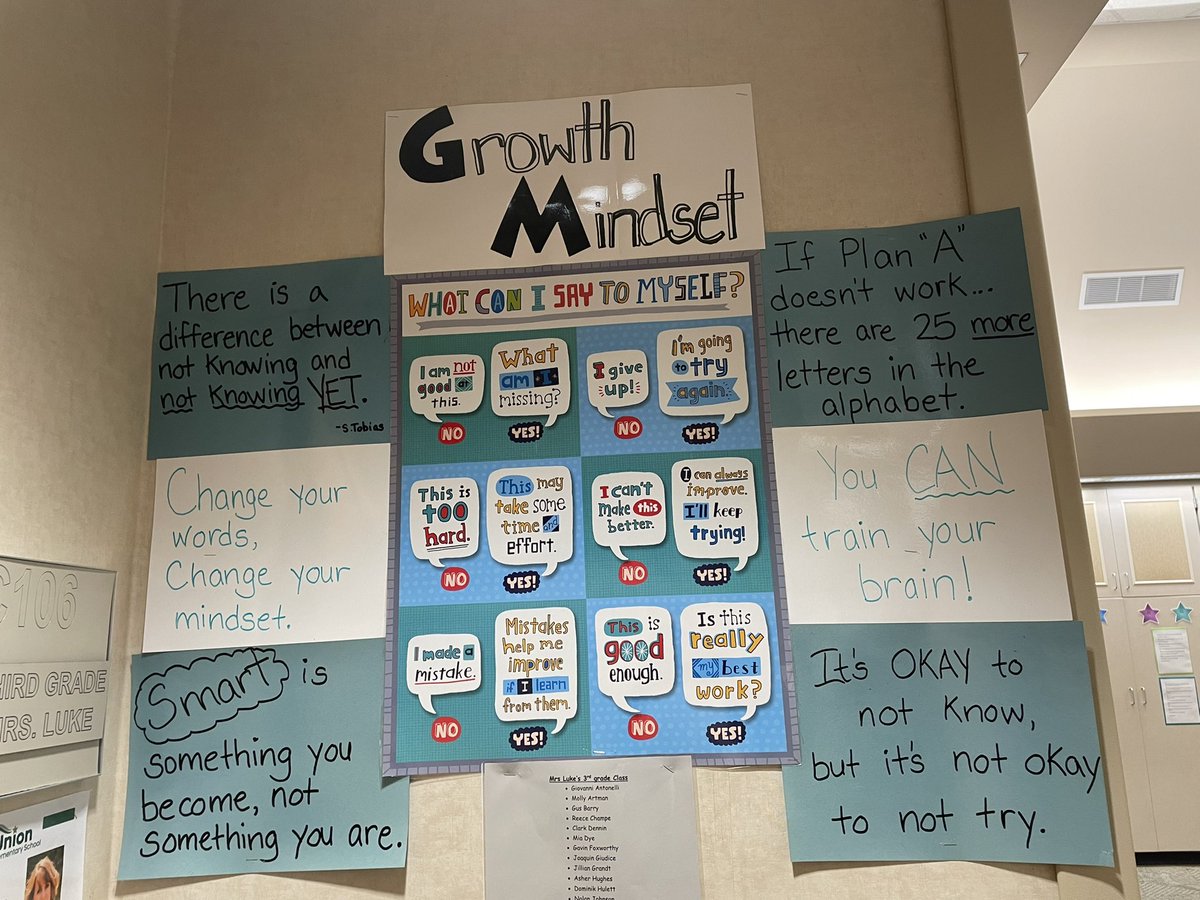 Growth
Mindset
There is a
difference between
not Knowing and
not Knowing YET.
-S.Tobias
Change your
words,
Change your
mindset.
Smart is
something you
become, not
something you are.
WHAT CAN I SAY TO MYSELF?
I am not
good at
this.
NO
What
am I
missing?
YES!
I give
up!
NO
I'm going
to try
again.
YES!
This is
too
hard.
NO
This may
take some
time and
effort.
YES!
I can't
make this
better.
NO
I can always
improve.
I'll keep
trying!
YES!
I made a
mistake.
NO
Mistakes
help me
improve
if I learn
from them.
YES!
This is
good
enough.
NO
Is this
really
my best
work?
YES!
If Plan "A"
doesn't work...
there are 25 more
letters in the
alphabet.
You CAN
train your
brain!
It's OKAY to
not Know,
but it's not oKay
to not try.
Mrs Luke's 3rd grade Class
Giovanni Antonelli
Molly Artman
Gus Barry
Reece Champe
Clark Dennin
Mia Dye
Gavin Foxworthy
Joaquin Giudice
Jillian Grandt
Asher Hughes
Dominik Hulett
Nolan Johnson
C106
HIRD GRADE
MRS. LUKE
Union
ementary School